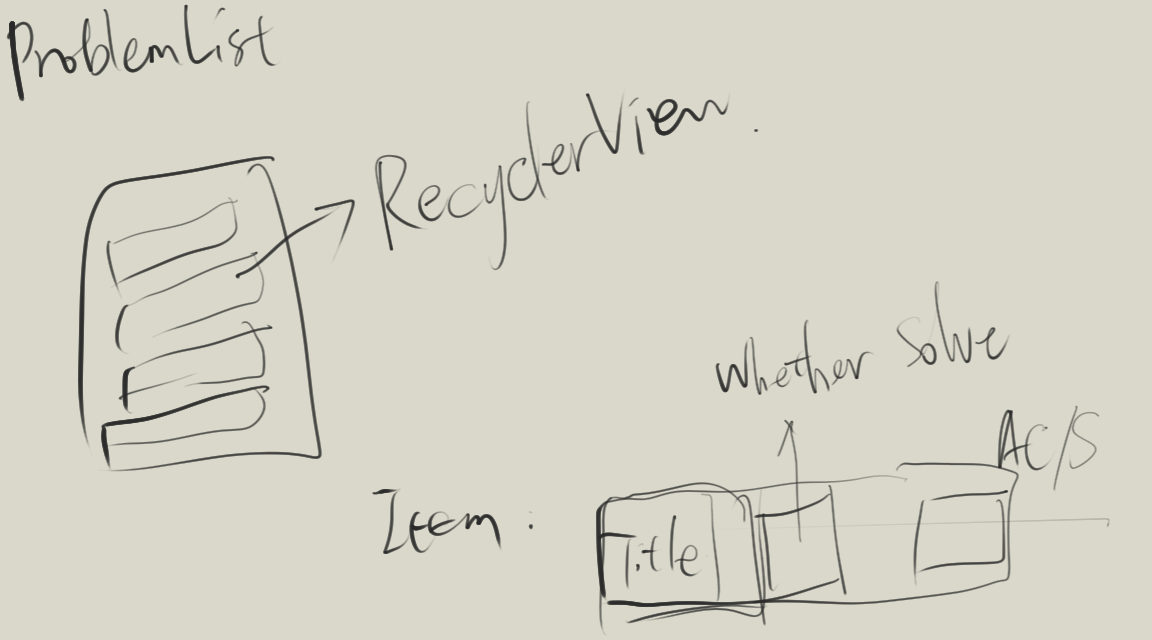 ProblemList
RecyclerView.
whether solve
AC/S
Item:
Title